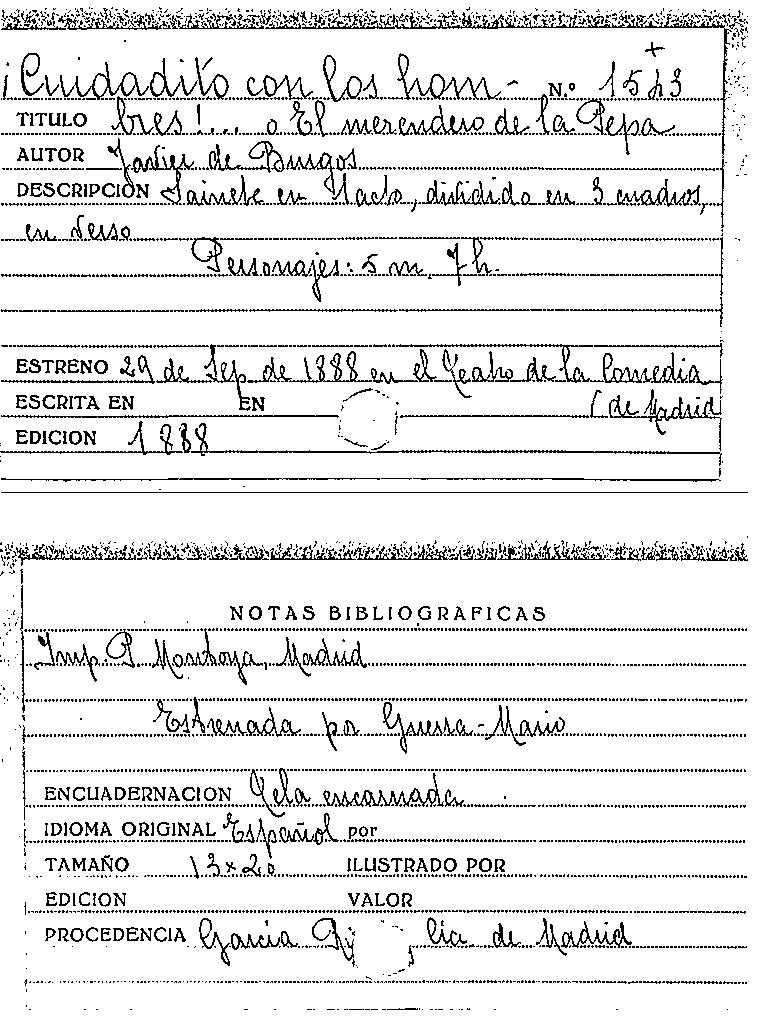 ¡Cuidadito con los hom- N.º 1543
TITULO bres!... o El merendero de la Pepa
AUTOR Javier de Burgos
DESCRIPCIÓN Sainete en 1 acto, dividido en 3 cuadros,
en verso
Personajes: 5 m. 7 h.
ESTRENO 29 de Sep. de 1888 en el Teatro de la Comedia
ESCRITA EN EN (de Madrid
EDICION 1888
NOTAS BIBLIOGRAFICAS
Imp. P. Montoya, Madrid
Estrenada por Guerra-Mario
ENCUADERNACION Tela encarnada
IDIOMA ORIGINAL Español por
TAMAÑO 13x20 ILUSTRADO POR
EDICION VALOR
PROCEDENCIA García lia. de Madrid